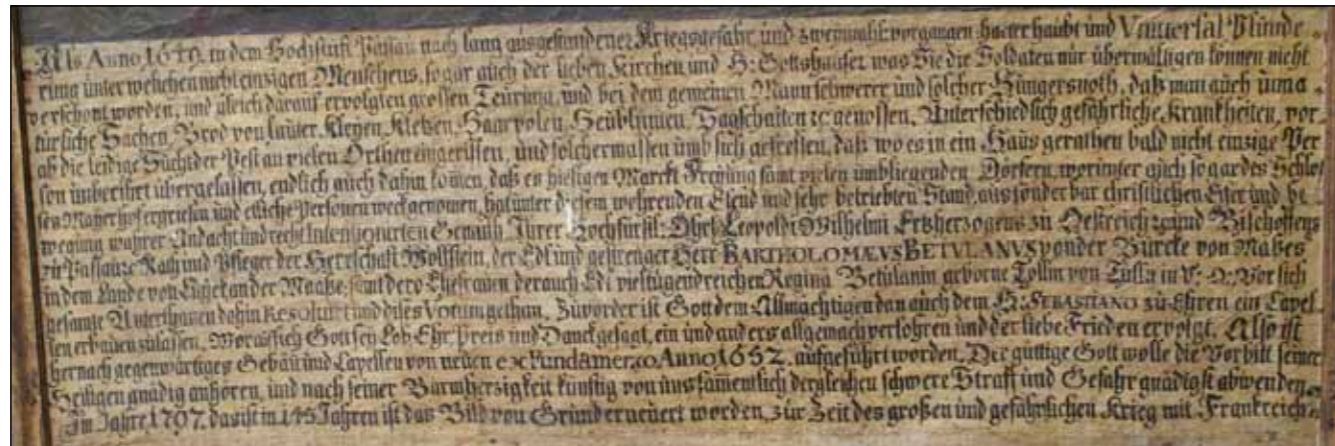 Als Anno 1649. in dem Hochstifft Passau nach lang ausgestandener Kriegsgefahr, und zweymahl vorgangen haubt und Vniuersal Plünde-
rung unter welchen nicht einzigen Menschens, sogar auch der lieben Kirchen und H: Gottshäuser was Sie die Soldaten nur überwältigen können nicht
verschont worden, und gleich darauf ervolgten grossen Teurung, und bei dem gemeinen Mann schwerer und solcher Hungersnoth, daß man auch unna-
türliche Sachen, Brod von lauter Kleyen, Kletzen, Haarpolen, Heublumen, Sagschaiten ꝛc genossen, Unterschiedlich gefährliche Krankheiten, vor-
ab die leidige Sucht der Pest an vielen Orthen eingerissen, und solchermassen umb sich gefressen, daß wo es in ein Haus gerathen bald nicht einzige Per-
son unberührt übergelassen, endlich auch dahin komen, daß es hiesigen Marckt Freyung samt vielen umbliegenden Dörfern, worunter auch sogar des Schlos-
sen Mayerhof ergriefen und etliche Personen weckgenomen, hat unter diesem wehrenden Elend und sehr betriebten Stand, aus sonderbar christlichen Eifer und be-
wegung wahrer Andacht und recht Intentionirten Gemüth Ihrer Hochfürstl: Leopoldi Wilhelmi Ertzherzogens zu Oestreich ꝛc und Bischoffens
zu Passau ꝛc Rath und Pfleger der Herrschaft Wolfstein, der Edl und gestrenger Herr BARTHOLOMÆVS BETVLANVS von der Bürcke von Mabes
in dem Lande von Lützel an der Maabs, samt dero Ehefrauen der auch Edl vieltugendreichen Regina Betulanin geborne Tollin von in V: O: Vor sich
gesamte Unterthanen dahin RESOLUIRT und dises VOTUM gethan, Zuvorder ist Gott dem Allmächtigen dan auch dem H: SEBASTIANO zu Ehren ein Capel-
len erbauen zulassen, Gott sey Lob Ehr, Preis und Danck gesagt, ein und anders allgemach verlohren und der liebe Frieden ervolgt. Also ist
hernach gegenwärtiges Gebäu und Capellen von neuen ex Fundamento Anno 1652. aufgeführt worden, Der guttige Gott wolle die Vorbitt seiner
Heiligen gnädig anhören, und nach seiner Barmherzigkeit künftig von uns sämentlich dergleichen schwere Straff und Gefahr gnädigst abwenden.
Im Jahre 1797. das ist in 145 Jahren ist das Bild von Grund erneuert worden, zur Zeit des großen und gefährlichen Krieg mit Frankreich.